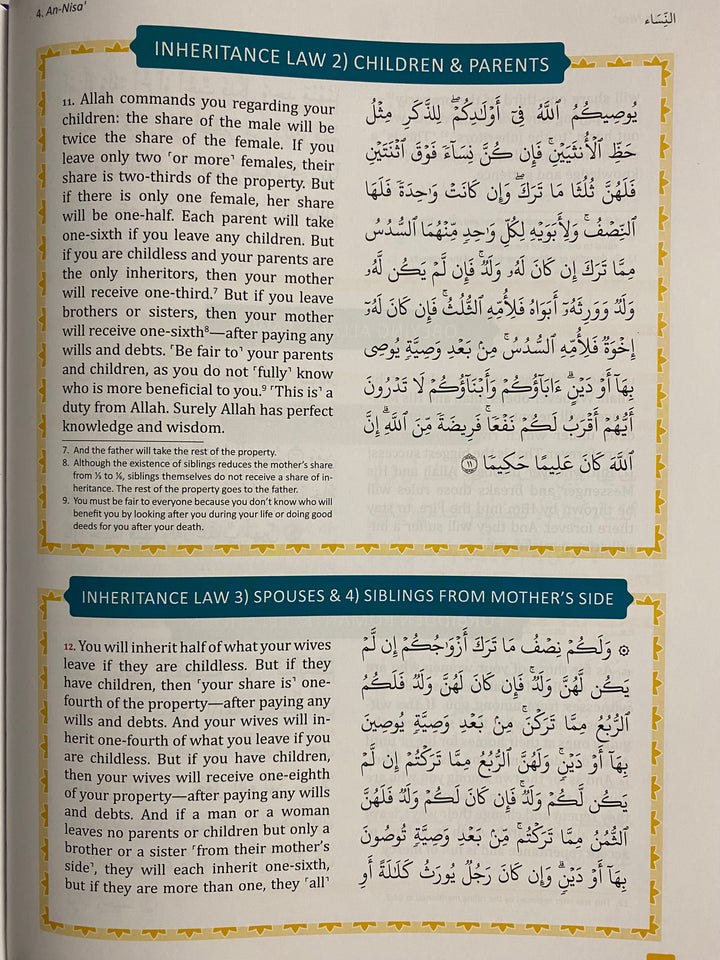 4. An-Nisa'
النِّسَاء
INHERITANCE LAW 2) CHILDREN & PARENTS
11. Allah commands you regarding your
children: the share of the male will be
twice the share of the female. If you
leave only two ˹or more˺ females, their
share is two-thirds of the property. But
if there is only one female, her share
will be one-half. Each parent will take
one-sixth if you leave any children. But
if you are childless and your parents are
the only inheritors, then your mother
will receive one-third.⁷ But if you leave
brothers or sisters, then your mother
will receive one-sixth⁸—after paying any
wills and debts. ˹Be fair to˺ your parents
and children, as you do not ˹fully˺ know
who is more beneficial to you.⁹ ˹This is˺ a
duty from Allah. Surely Allah has perfect
knowledge and wisdom.
يُوصِيكُمُ ٱللَّهُ فِىٓ أَوْلَـٰدِكُمْ ۖ لِلذَّكَرِ مِثْلُ
حَظِّ ٱلْأُنثَيَيْنِ ۚ فَإِن كُنَّ نِسَآءً فَوْقَ ٱثْنَتَيْنِ
فَلَهُنَّ ثُلُثَا مَا تَرَكَ ۖ وَإِن كَانَتْ وَٰحِدَةً فَلَهَا
ٱلنِّصْفُ ۚ وَلِأَبَوَيْهِ لِكُلِّ وَٰحِدٍ مِّنْهُمَا ٱلسُّدُسُ
مِمَّا تَرَكَ إِن كَانَ لَهُۥ وَلَدٌ ۚ فَإِن لَّمْ يَكُن لَّهُۥ
وَلَدٌ وَوَرِثَهُۥٓ أَبَوَاهُ فَلِأُمِّهِ ٱلثُّلُثُ ۚ فَإِن كَانَ لَهُۥٓ
إِخْوَةٌ فَلِأُمِّهِ ٱلسُّدُسُ ۚ مِنۢ بَعْدِ وَصِيَّةٍ يُوصِى
بِهَآ أَوْ دَيْنٍ ۗ ءَابَآؤُكُمْ وَأَبْنَآؤُكُمْ لَا تَدْرُونَ
أَيُّهُمْ أَقْرَبُ لَكُمْ نَفْعًا ۚ فَرِيضَةً مِّنَ ٱللَّهِ ۗ إِنَّ
ٱللَّهَ كَانَ عَلِيمًا حَكِيمًا ١١
7. And the father will take the rest of the property.
8. Although the existence of siblings reduces the mother's share
from ⅓ to ⅙, siblings themselves do not receive a share of in-
heritance. The rest of the property goes to the father.
9. You must be fair to everyone because you don't know who will
benefit you by looking after you during your life or doing good
deeds for you after your death.
INHERITANCE LAW 3) SPOUSES & 4) SIBLINGS FROM MOTHER'S SIDE
12. You will inherit half of what your wives
leave if they are childless. But if they
have children, then ˹your share is˺ one-
fourth of the property—after paying any
wills and debts. And your wives will in-
herit one-fourth of what you leave if you
are childless. But if you have children,
then your wives will receive one-eighth
of your property—after paying any wills
and debts. And if a man or a woman
leaves no parents or children but only a
brother or a sister ˹from their mother's
side˺, they will each inherit one-sixth,
but if they are more than one, they ˹all˺
۞ وَلَكُمْ نِصْفُ مَا تَرَكَ أَزْوَٰجُكُمْ إِن لَّمْ
يَكُن لَّهُنَّ وَلَدٌ ۚ فَإِن كَانَ لَهُنَّ وَلَدٌ فَلَكُمُ
ٱلرُّبُعُ مِمَّا تَرَكْنَ ۚ مِنۢ بَعْدِ وَصِيَّةٍ يُوصِينَ
بِهَآ أَوْ دَيْنٍ ۚ وَلَهُنَّ ٱلرُّبُعُ مِمَّا تَرَكْتُمْ إِن لَّمْ
يَكُن لَّكُمْ وَلَدٌ ۚ فَإِن كَانَ لَكُمْ وَلَدٌ فَلَهُنَّ
ٱلثُّمُنُ مِمَّا تَرَكْتُم ۚ مِّنۢ بَعْدِ وَصِيَّةٍ تُوصُونَ
بِهَآ أَوْ دَيْنٍ ۗ وَإِن كَانَ رَجُلٌ يُورَثُ كَلَـٰلَةً أَوِ